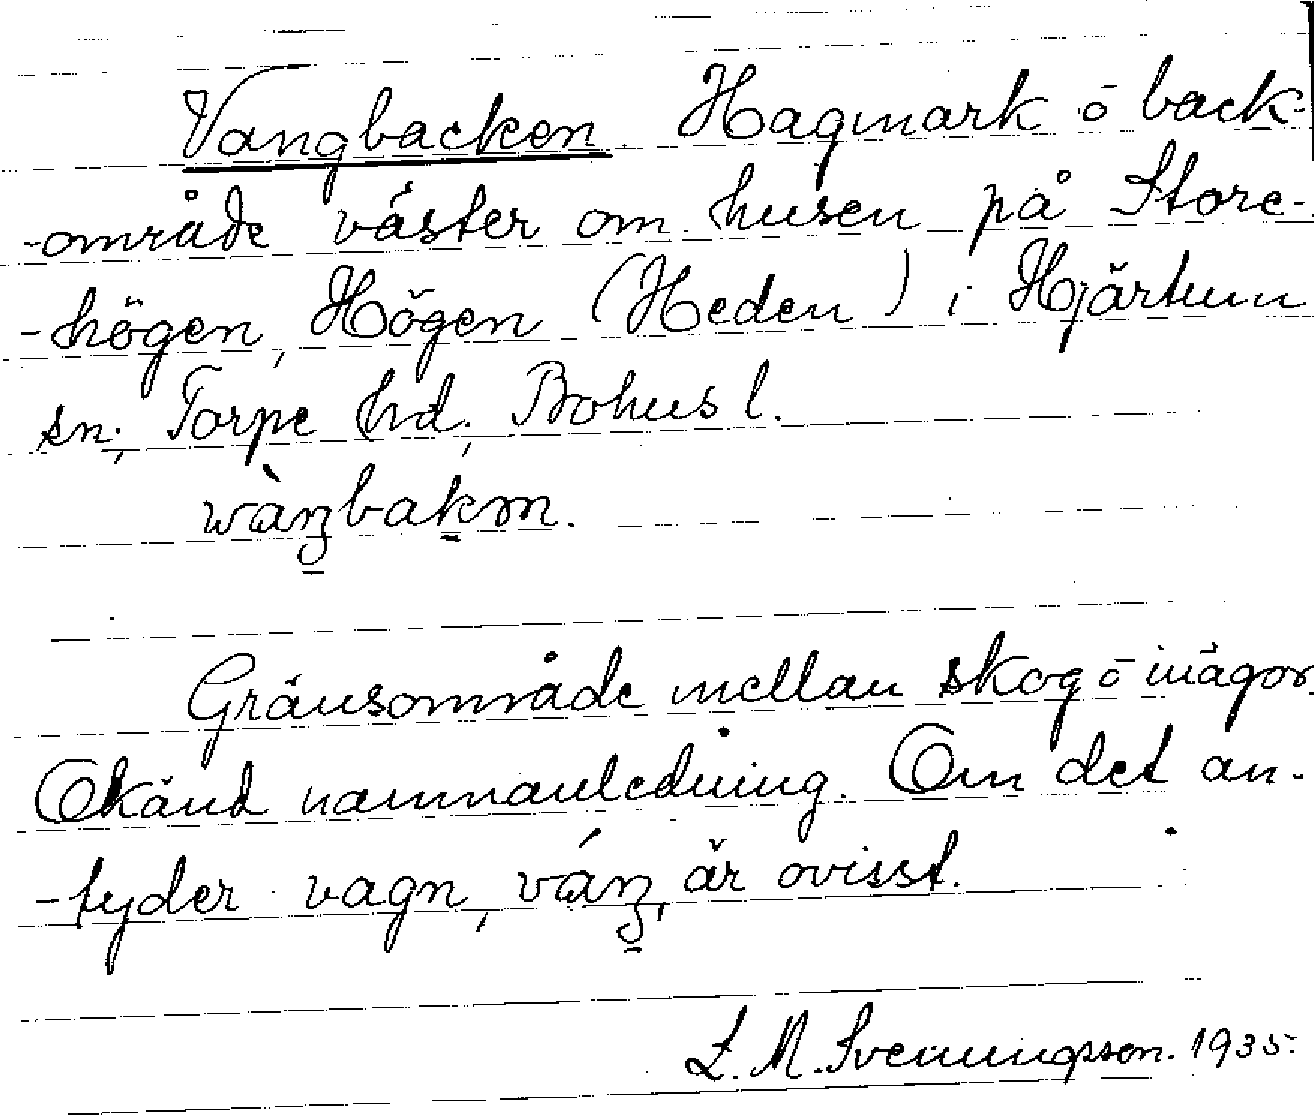 Vangbacken Hagmark ō back-
-område väster om husen på Store-
-högen, Högen (Heden) i Hjärtum
sn., Torpe hd., Bohus l.
wàŋbakm̥.
Gränsområde mellan skog ō inägor.
Okänd namnanledning. Om det an-
-tyder vagn, váŋ, är ovisst.
L. M. Svenungsson. 1935.